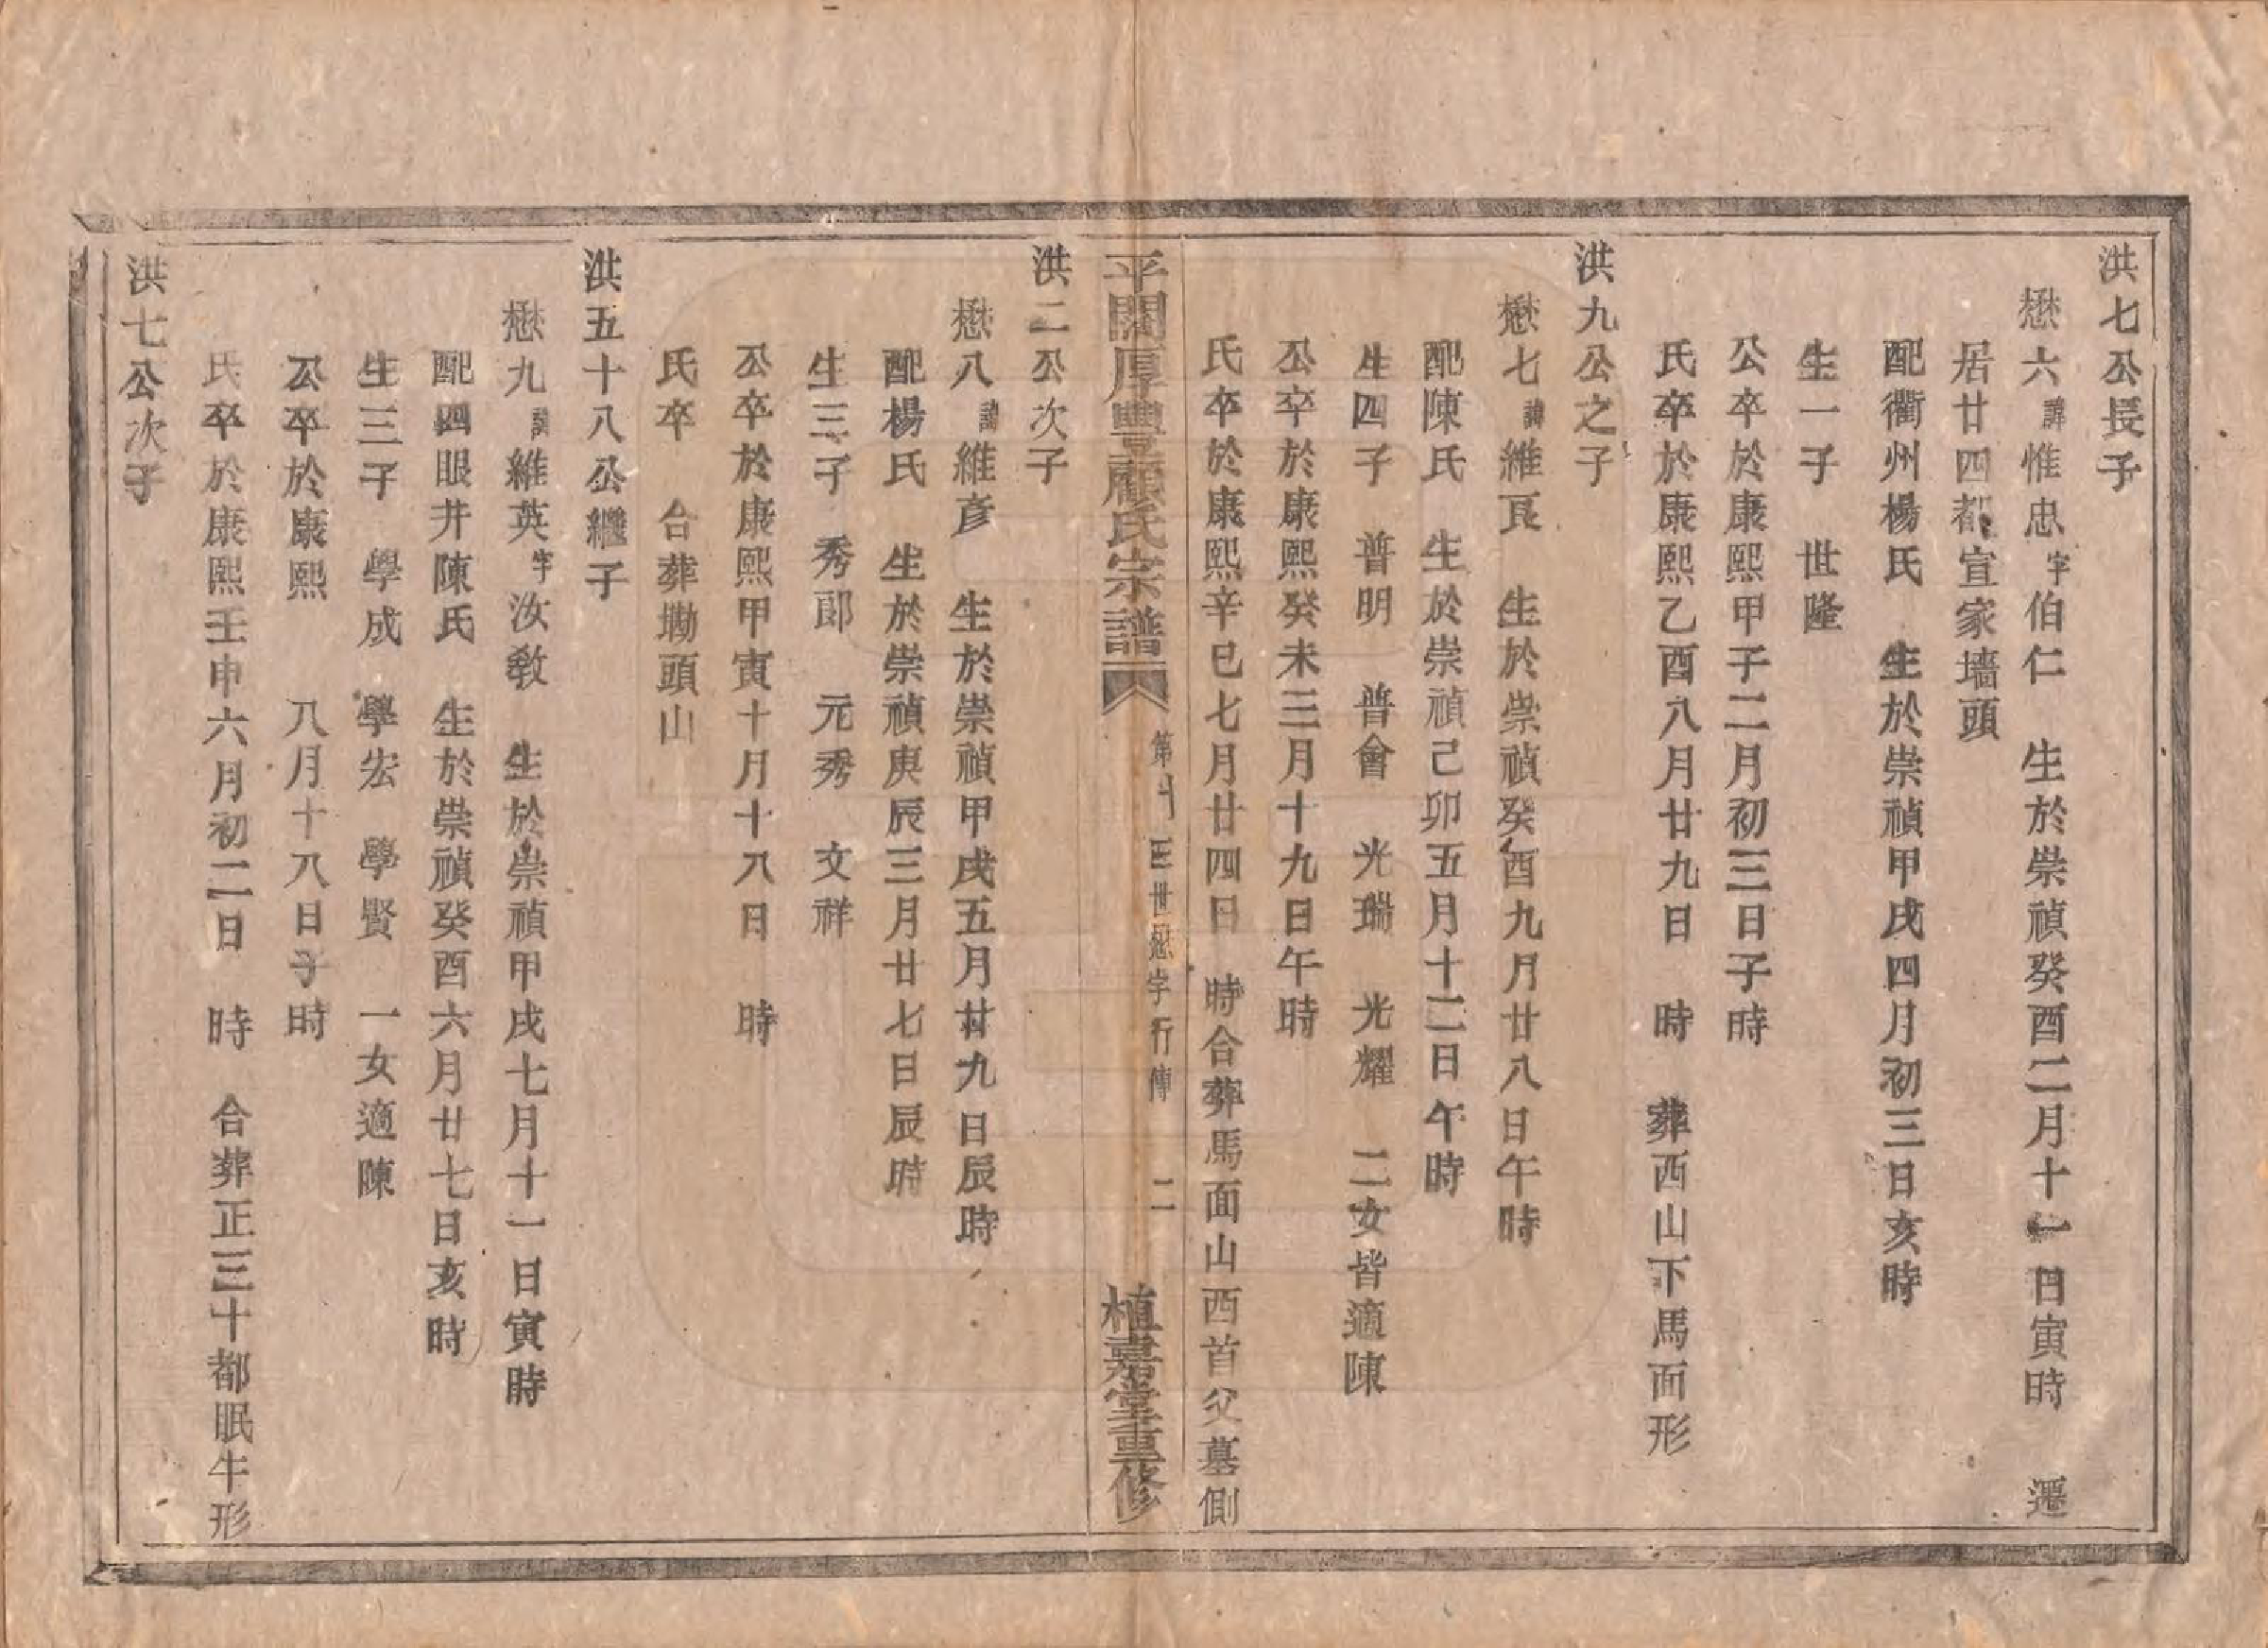 洪七公長子
懋六諱惟忠字伯仁　生於崇禎癸酉二月十一日寅時　遷
居廿四都宣家墻頭
配衢州楊氏　生於崇禎甲戌四月初三日亥時
生一子　世隆
公卒於康熙甲子二月初三日子時
氏卒於康熙乙酉八月廿九日　時　葬西山下馬面形
洪九公之子
懋七諱維良　生於崇禎癸酉九月廿八日午時
配陳氏　生於崇禎己卯五月十二日午時
生四子　普明　普會　光瑞　光耀　二女皆適陳
公卒於康熙癸未三月十九日午時
氏卒於康熙辛巳七月廿四日　時合葬馬面山西首父墓側
平閣厚豊顧氏宗譜　第　世懋字行傳　二　植嘉堂重修
洪二公次子
懋八諱維彥　生於崇禎甲戌五月廿九日辰時
配楊氏　生於崇禎庚辰三月廿七日辰時
生三子　秀郎　元秀　文祥
公卒於康熙甲寅十月十八日　時
氏卒　合葬墈頭山
洪五十八公繼子
懋九諱維英字汝敎　生於崇禎甲戌七月十一日寅時
配四眼井陳氏　生於崇禎癸酉六月廿七日亥時
生三子　學成　學宏　學賢　一女適陳
公卒於康熙　八月十八日子時
氏卒於康熙壬申六月初二日　時　合葬正三十都眠牛形
洪七公次子